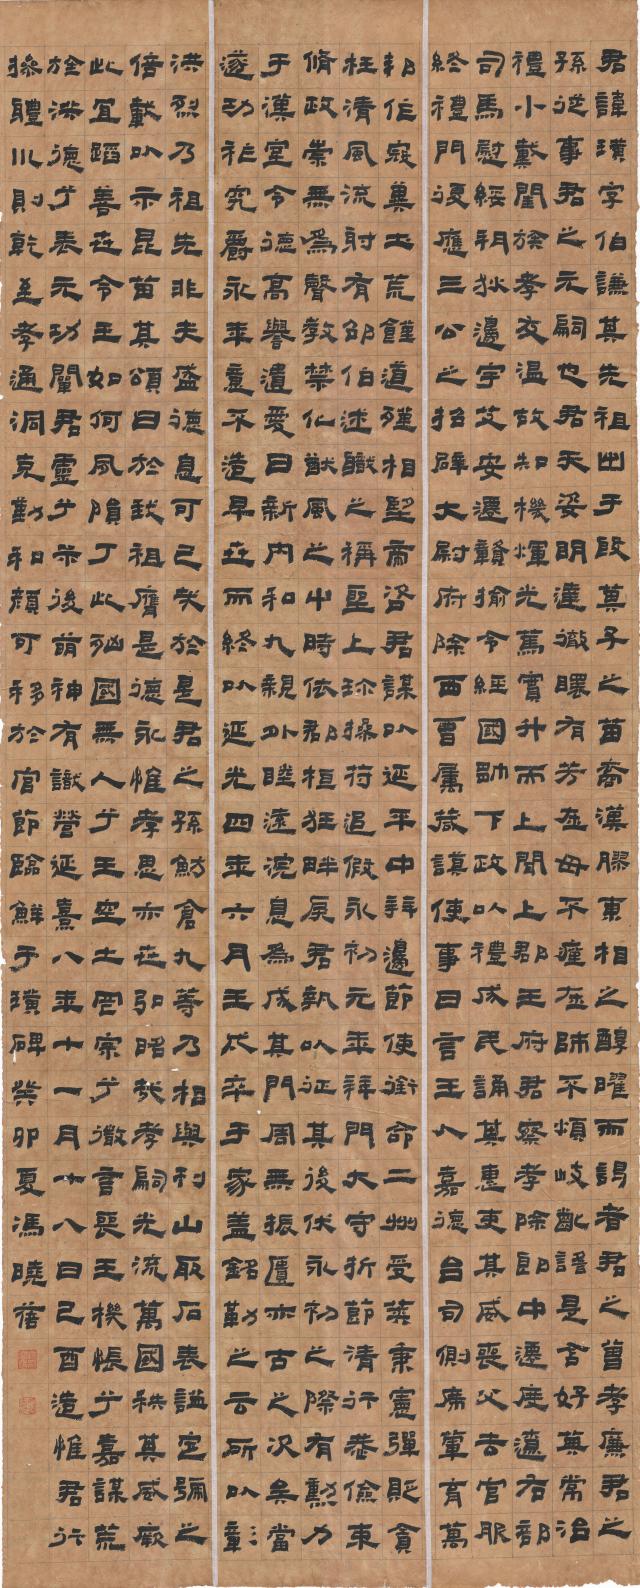 君諱璜字伯謙其先祖出于殷箕子之苗裔漢膠東相之醇曜而謁者君之曾孝廉君之
孫從事君之元嗣也君天姿明達徹曠有芳在母不瘴在師不煩岐齔謠是含好典常治
禮小戴閨族孝友溫故知機煇光篤實升而上聞上郡王府君察孝除郎中遷度遼右部
司馬慰綏朔狄邊宇艾安遷贛揄令經國帥下政以禮成民誦其惠吏其威喪父去官服
終禮門復應三公之招辟大尉府除西曹屬歲謨使事日言王人嘉德台司側席輩育萬
邦仕寇冀土荒饉道殣相望帝咨君謀以延平中拜邊節使銜命二州受莢秉憲彈貶貪
枉清風流射有邵伯述職之稱聖上珍操符追假永初元年拜門大守折節清行恭儉束
脩政崇無為聲教禁化猷風之中時依郡桓狂畔戾君執以征其後伏永初之際有勳力
于漢室令德高譽遺愛日新內和九親外睦遠浣息為成其門周無振匱亦古之况矣當
遂功祚究爵永年意不造早世而終以延光四年六月壬戌卒于家蓋銘勒之云所以彰
洪烈乃祖先非夫盛德惡可已哉於是君之孫魴倉九等乃相與刊山取石表謚定號之
倍載以示昆苗其頌曰於鑠祖膺是德永惟孝思亦世弘昭哉孝嗣光流萬國秩其威厥
此宜蹈善世令王如何夙隕丁此咎國無人兮王空土罔宗兮微言喪王機悵兮嘉謀荒
於洪德兮表元功闡君靈兮示後萌神有識營延熹八年十一月十八日己酉造惟君行
操體川則乾至孝通洞克勤和顏可移於官節臨鮮于璜碑癸卯夏馮曉蓓